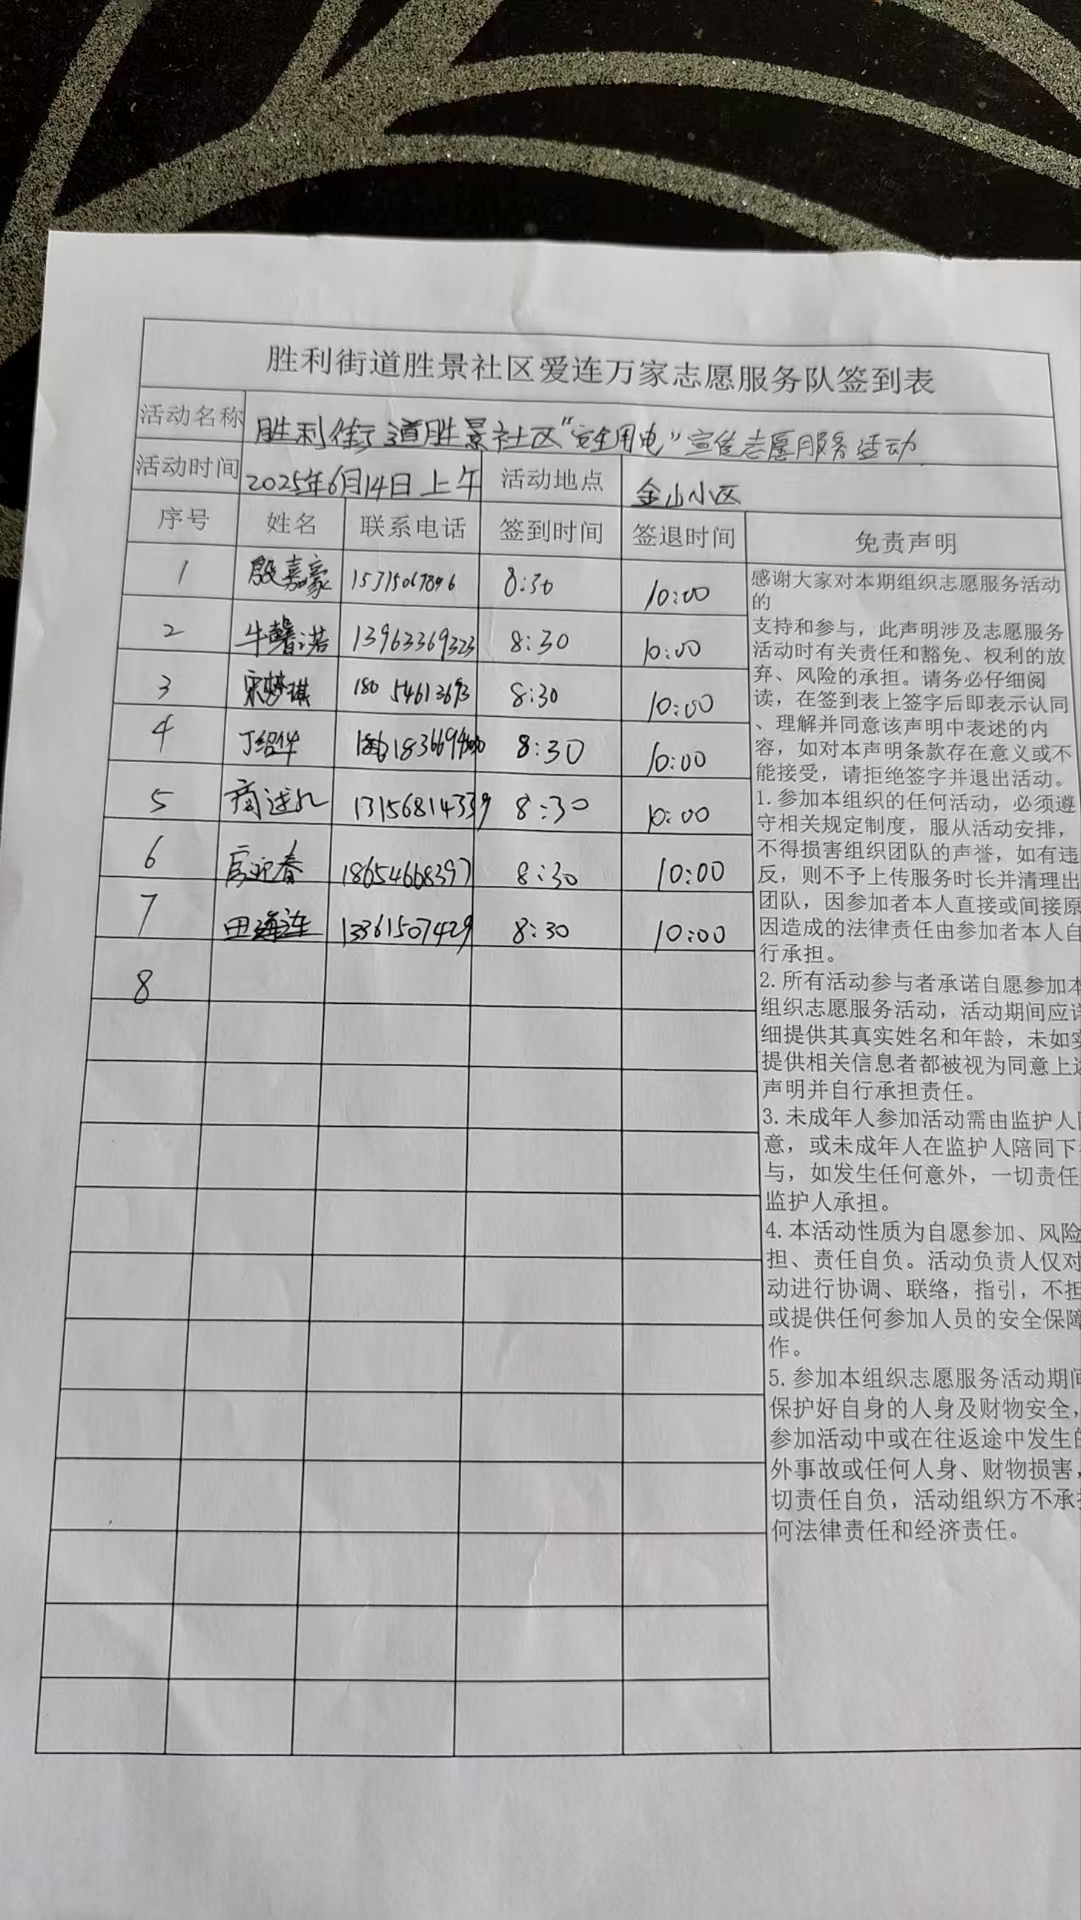 胜利街道胜景社区爱连万家志愿服务队签到表
活动名称 胜利街道胜景社区“安全用电”宣传志愿服务活动
活动时间 2025年6月14日上午 活动地点 金山小区
序号 姓名 联系电话 签到时间 签退时间 免责声明
1 殷嘉豪 15315067896 8:30 10:00
2 牛馨诺 13963369323 8:30 10:00
3 宋梦琪 180 54613693 8:30 10:00
4 丁绍华 8:30 10:00
5 13156814339 8:30 10:00
6 房迎春 18654668397 8:30 10:00
7 田海连 13361507429 8:30 10:00
8
感谢大家对本期组织志愿服务活动
的
支持和参与，此声明涉及志愿服务
活动时有关责任和豁免、权利的放
弃、风险的承担。请务必仔细阅
读，在签到表上签字后即表示认同
、理解并同意该声明中表述的内
容，如对本声明条款存在意义或不
能接受，请拒绝签字并退出活动。
1. 参加本组织的任何活动，必须遵
守相关规定制度，服从活动安排，
不得损害组织团队的声誉，如有违
反，则不予上传服务时长并清理出
团队，因参加者本人直接或间接原
因造成的法律责任由参加者本人自
行承担。
2. 所有活动参与者承诺自愿参加本
组织志愿服务活动，活动期间应详
细提供其真实姓名和年龄，未如实
提供相关信息者都被视为同意上述
声明并自行承担责任。
3. 未成年人参加活动需由监护人同
意，或未成年人在监护人陪同下
与，如发生任何意外，一切责任
监护人承担。
4. 本活动性质为自愿参加、风险
担、责任自负。活动负责人仅对
动进行协调、联络，指引，不担
或提供任何参加人员的安全保障
作。
5. 参加本组织志愿服务活动期间
保护好自身的人身及财物安全，
参加活动中或在往返途中发生的
外事故或任何人身、财物损害，
切责任自负，活动组织方不承担
何法律责任和经济责任。